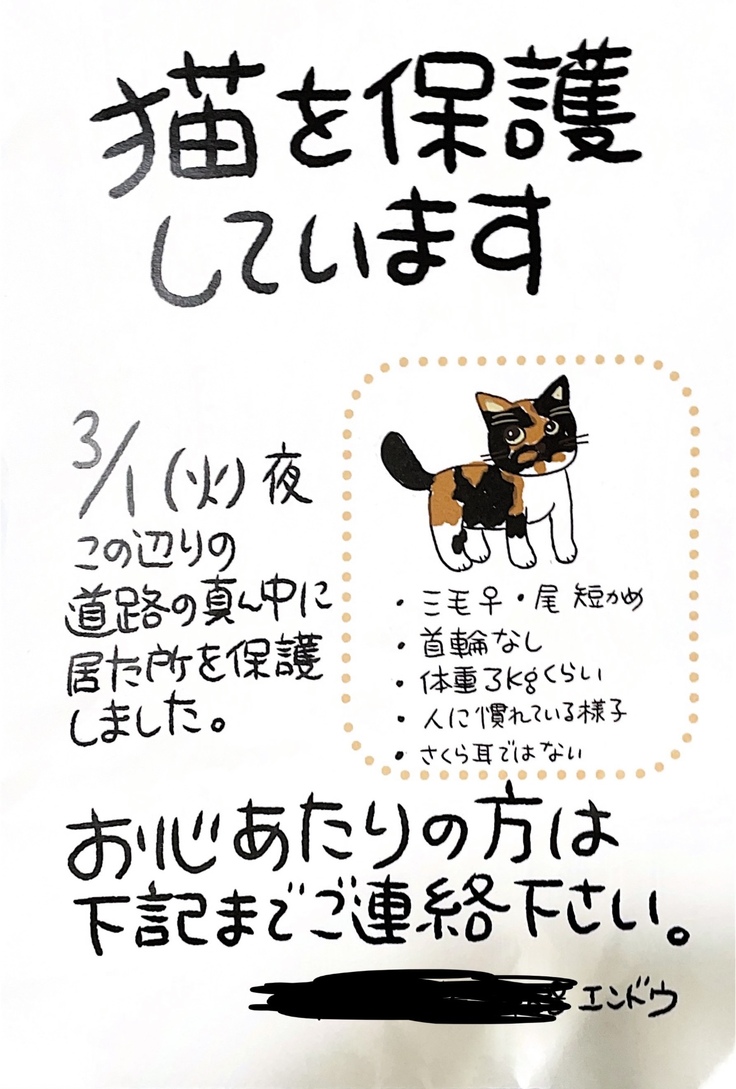 猫を保護
しています
3/1(火)夜
この辺りの
道路の真ん中に
居た所を保護
しました。
・三毛♀・尾 短かめ
・首輪なし
・体重3kgくらい
・人に慣れている様子
・さくら耳ではない
お心あたりの方は
下記までご連絡下さい。
エンドウ